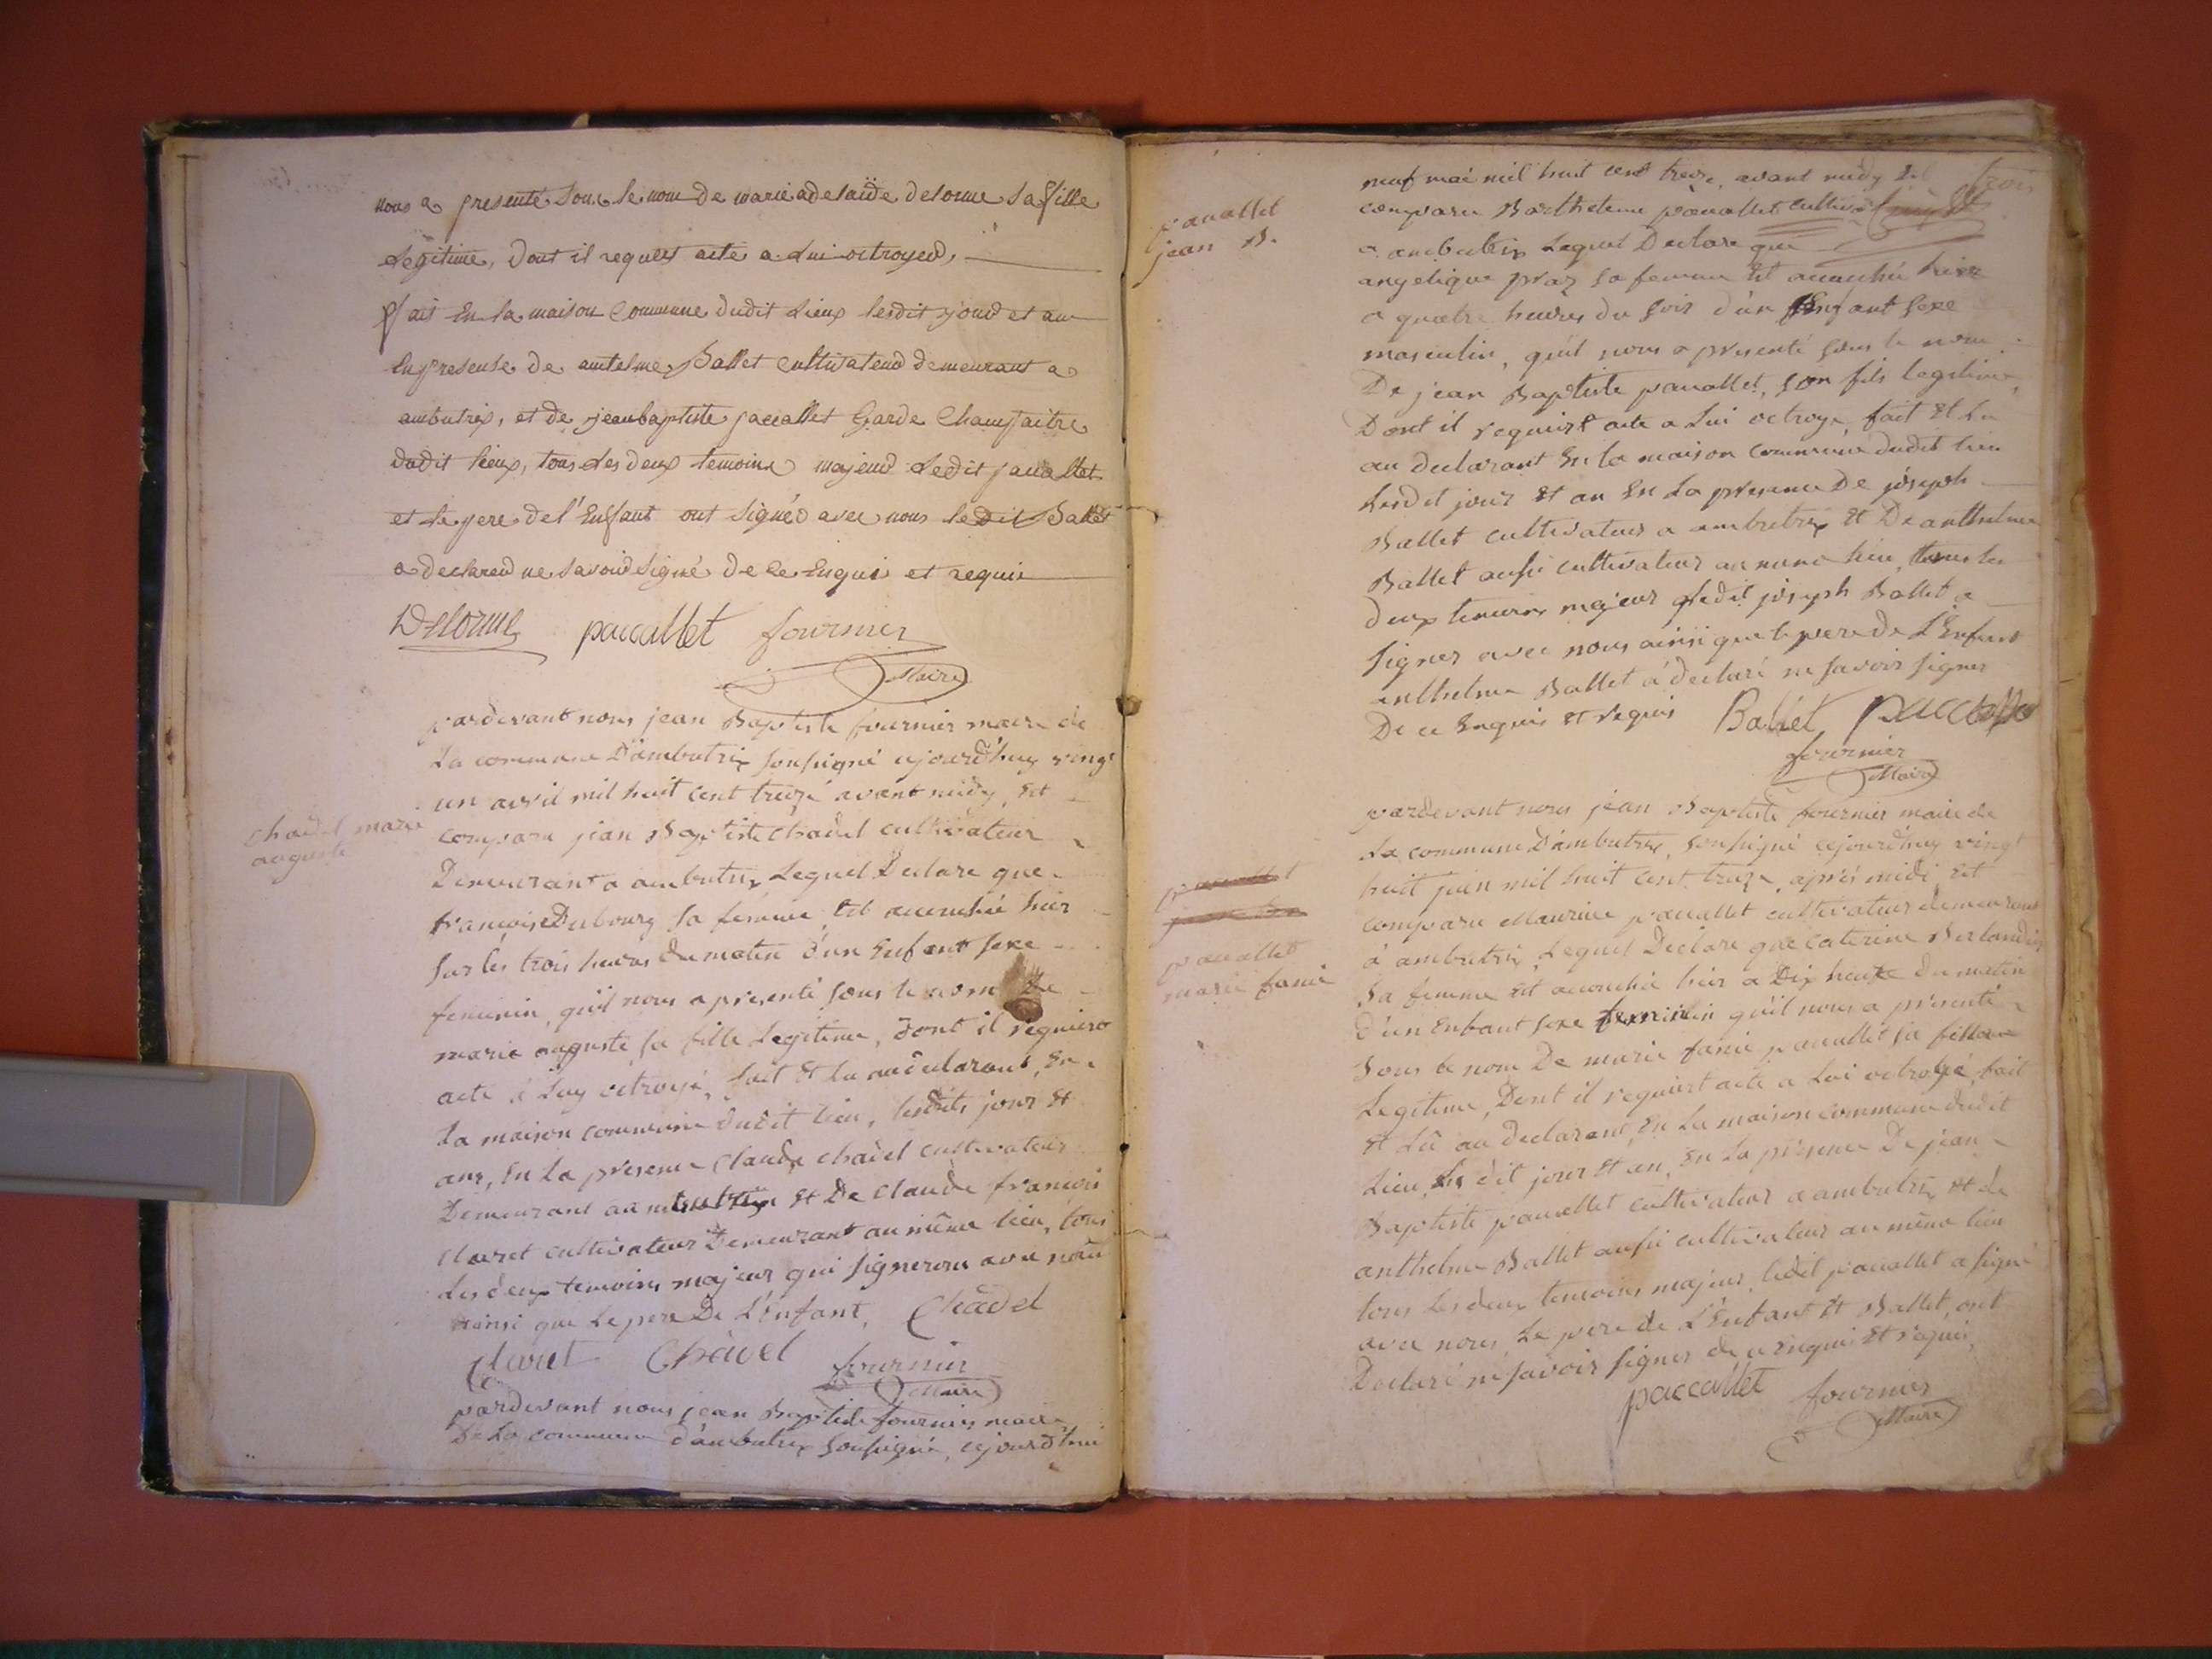 nous a presenté sous le nom de marie adelaïde delorme sa fille
légitime, dont il requers acte a lui octroyed,
fait En la maison Commune dudit Lieux lesdit jour et an
En presense de antelme Ballet Cultivateud demeurant a
ambutrix, et de jeanbaptiste pacallet Garde Champaitre
dudit lieux, tous les deux temoins majeud Ledit pacallet
et le pere de l'Enfant ont Signéd avec nous ledit Ballet
a declared ne savoid Signé de Ce Enquis et requis
Delorme paccallet fournier
Maire
pardevant nous jean Baptiste fournier maire de
La commune D'ambutrix soussigné cejourd'huy vingt
un avril mil huit cent treize avant midy, Est
chadel marie
auguste
comparu jean Baptiste chadel cultivateur
Demeurant a ambutrix Lequel Declare que
françoise Dubourg sa femme Est accouchée hier
sur les trois heures du matin d'un Enfant sexe
feminin, qu'il nous a presenté sous le nom De
marie auguste sa fille Legitime, dont il requiert
acte a Luy octroyé, fait Et Lu au declarant, En
La maison commune dudit lieu, lesdits jour Et
ans, En La presence Claude chadel cultivateur
Demeurant a ambutrix Et De Claude françois
Claret cultivateur Demeurant au même lieu, tous
Les deux temoins majeur qui signerons avec nous
ainsi que Le pere De L'Enfant, Chadel
Claret Chadel fournier
Maire
pardevant nous jean Baptiste fournier maire
De La commune d'ambutrix soussigné, cejourd'hui
pacallet
jean B.
neuf mai mil huit cent treize, avant midy Est
trois
comparu Barthelemi pacallet cultiv
a ambutrix Lequel Declare que
angelique praz sa femme Est accouchée hier
a quatre heures du soir d'un Enfant sexe
masculin, qu'il nous a presenté sous le nom
De jean Baptiste pacallet, son fils legitime,
Dont il requiert acte a Lui octroye, fait Et Lu
au declarant En la maison commune dudit lieu
Lesdit jour Et an En La presence De joseph
Ballet cultivateur a ambutrix Et De anthelme
Ballet aussi cultivateur au meme lieu, tous les
deux temoins majeur Ledit joseph Ballet a
signer avec nous ainsi que le pere de L'Enfant
anthelme Ballet a declaré ne savoir signer
De ce Enquis Et requis Ballet paccallet
fournier
Maire
pardevant nous jean Baptiste fournier maire de
La commune D'ambutrix, soussigné cejourd'huy vingt
huit juin mil huit cent treize, aprés midi Est
pacallet
comparu Maurice pacallet cultivateur demeurant
à ambutrix Lequel Declare que Caterine Berlandin
pacallet
marie fanie
sa femme Est accouchée hier a Dix heure du matin
d'un Enfant sexe feminin qu'il nous a présenté
sous le nom De marie fanie pacallet sa fille
Legitime, Dont il requiert acte a Lui octroyé, fait
Et Lû au declarant, En La maison commune dudit
Lieu Les dit jour Et an, En La présence De jean
Baptiste pacallet cultivateur a ambutrix et de
anthelme Ballet aussi cultivateur au même lieu
tous Les deux temoins majeur, ledit pacallet a signé
avec nous, Le pere de L'Enfant Et Ballet, ont
Declaré ne savoir signer de ce Enquis Et requis
paccallet fournier
Maire